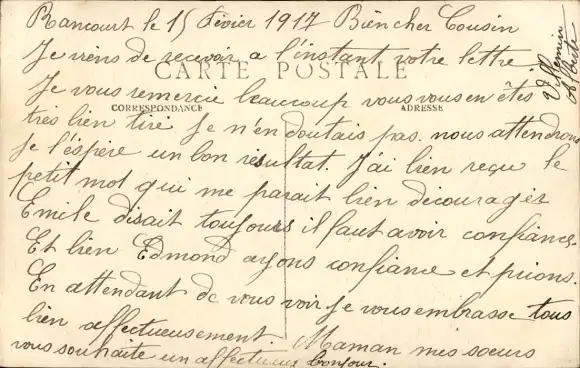 Rancourt le 15 Février 1917 Bien cher Cousin
Je viens de recevoir a l'instant votre lettre
CARTE POSTALE
Je vous remercie beaucoup vous vous en êtes
CORRESPONDANCE
ADRESSE
très bien tiré je n'en doutais pas. nous attendrons
je l'éspère un bon résultat. J'ai bien reçu le
petit mot qui me parait bien découragér
Emile disait toujours il faut avoir confiance.
Et bien Edmond ayons confiance et prions.
En attendant de vous voir je vous embrasse tous
bien affectueusement. Maman mes soeurs
vous souhaite un affectueux bonjour.